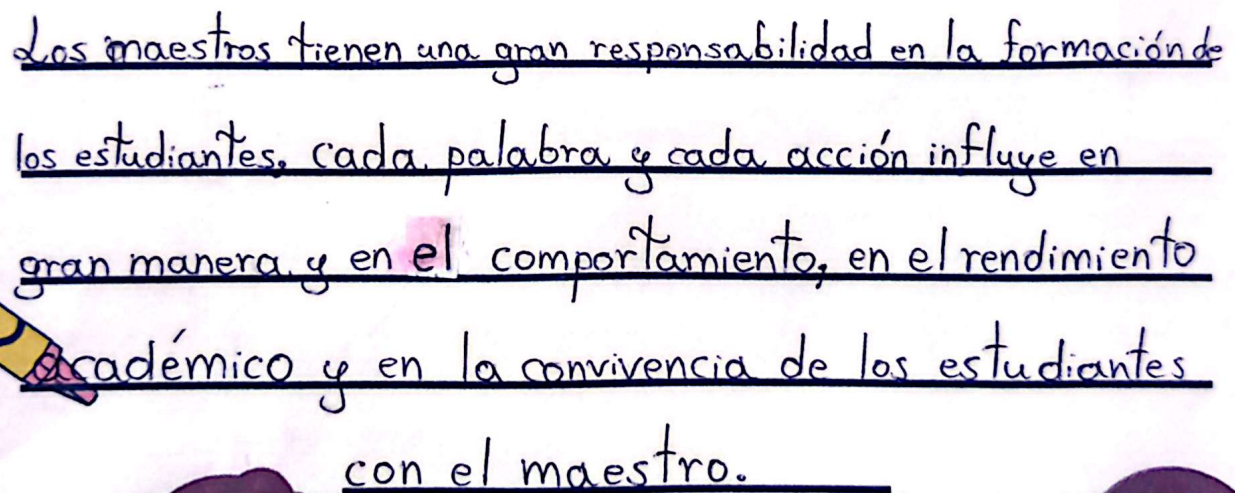 Los maestros tienen una gran responsabilidad en la formación de
los estudiantes, cada palabra y cada acción influye en
gran manera y en el comportamiento, en el rendimiento
académico y en la convivencia de los estudiantes
con el maestro.